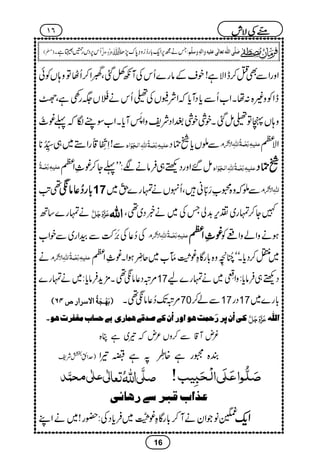 ۱۶ مُنّے کی لاش
فرمانِ مصطفےٰ صلی اللہ تعالیٰ علیہ والہ وسلم
اور اسے قتل بھی کر ڈالا ہے! خوف کے مارے اُس کی آنکھ کھل گئی، گھبرا کر اُٹھا تو وہاں کوئی
ڈاکو وغیرہ نہ تھا۔ اب اُسے یاد آیا کہ اشرفیوں کی تھیلی تو اُس نے فُلاں جگہ رکھی ہے، جھٹ
وہاں پہنچا تو تھیلی مل گئی۔ خوشی خوشی بغداد شریف واپس آیا۔ اب سوچنے لگا کہ پہلے غوثِ
الاعظم
سے ملوں یا شیخ حماد
سے! اتفاقاً راستے میں ہی سیِّدُنا
شیخ حماد
مل گئے اور دیکھتے ہی فرمانے لگے: ’’پہلے جا کر غوثِ اعظم
سے ملو کہ وہ محبوبِ ربّانی ہیں، اُنہوں نے تمہارے حق میں 17 بار دُعا مانگی تھی تب
کہیں جا کر تمہاری تقدیر بدلی جس کی میں نے خبر دی تھی، اللہ عزوجل نے تمہارے ساتھ
ہونے والے واقعے کو غوثِ اعظم
کی دُعا کی بَرَکت سے بیداری سے خواب
میں منتقل کر دیا۔‘‘ چُنانچہ وہ بارگاہِ غوثیت مآب میں حاضر ہوا۔ غوثِ اعظم
نے
دیکھتے ہی فرمایا: ’’واقعی میں نے تمہارے لیے 17 مرتبہ دعا مانگی تھی۔‘‘ مزید فرمایا: میں نے تمہارے
بارے میں 17 در 17 سے لے کر 70 مرتبہ تک دُعا مانگی تھی۔ (بَہْجَۃُ الاسرار ص ۶۴)
اللہ عزوجل کی اُن پر رَحمت ہو اور اُن کے صدقے ہماری بے حساب مغفرت ہو۔
غرض آقا سے کروں عرض کہ تیری ہے پناہ
بندہ مجبور ہے خاطر پہ ہے قبضہ تیرا (حدائقِ بخشش شریف)
صَلُّوا عَلَی الْحَبِیْب! صلَّی اللہُ تعالٰی علٰی محمَّد
عذابِ قبر سے رھائی
ایک غمگین نوجوان نے آ کر بارگاہِ غوثیت میں فریاد کی: حضور! میں نے اپنے
16